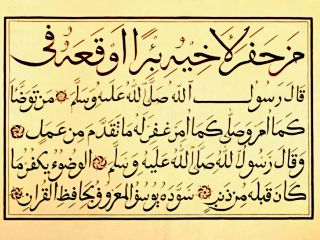 من حفر لاخيه بئرا اوقعه في
قال رسول الله صلى الله عليه وسلم من توضأ
كما امر وصلى كما امر غفر له ما تقدم من عمل
وقال رسول الله صلى الله عليه وسلم الوضوء يكفر ما
كان قبله من ذنب سوده يوسف المعروف بحافظ القران